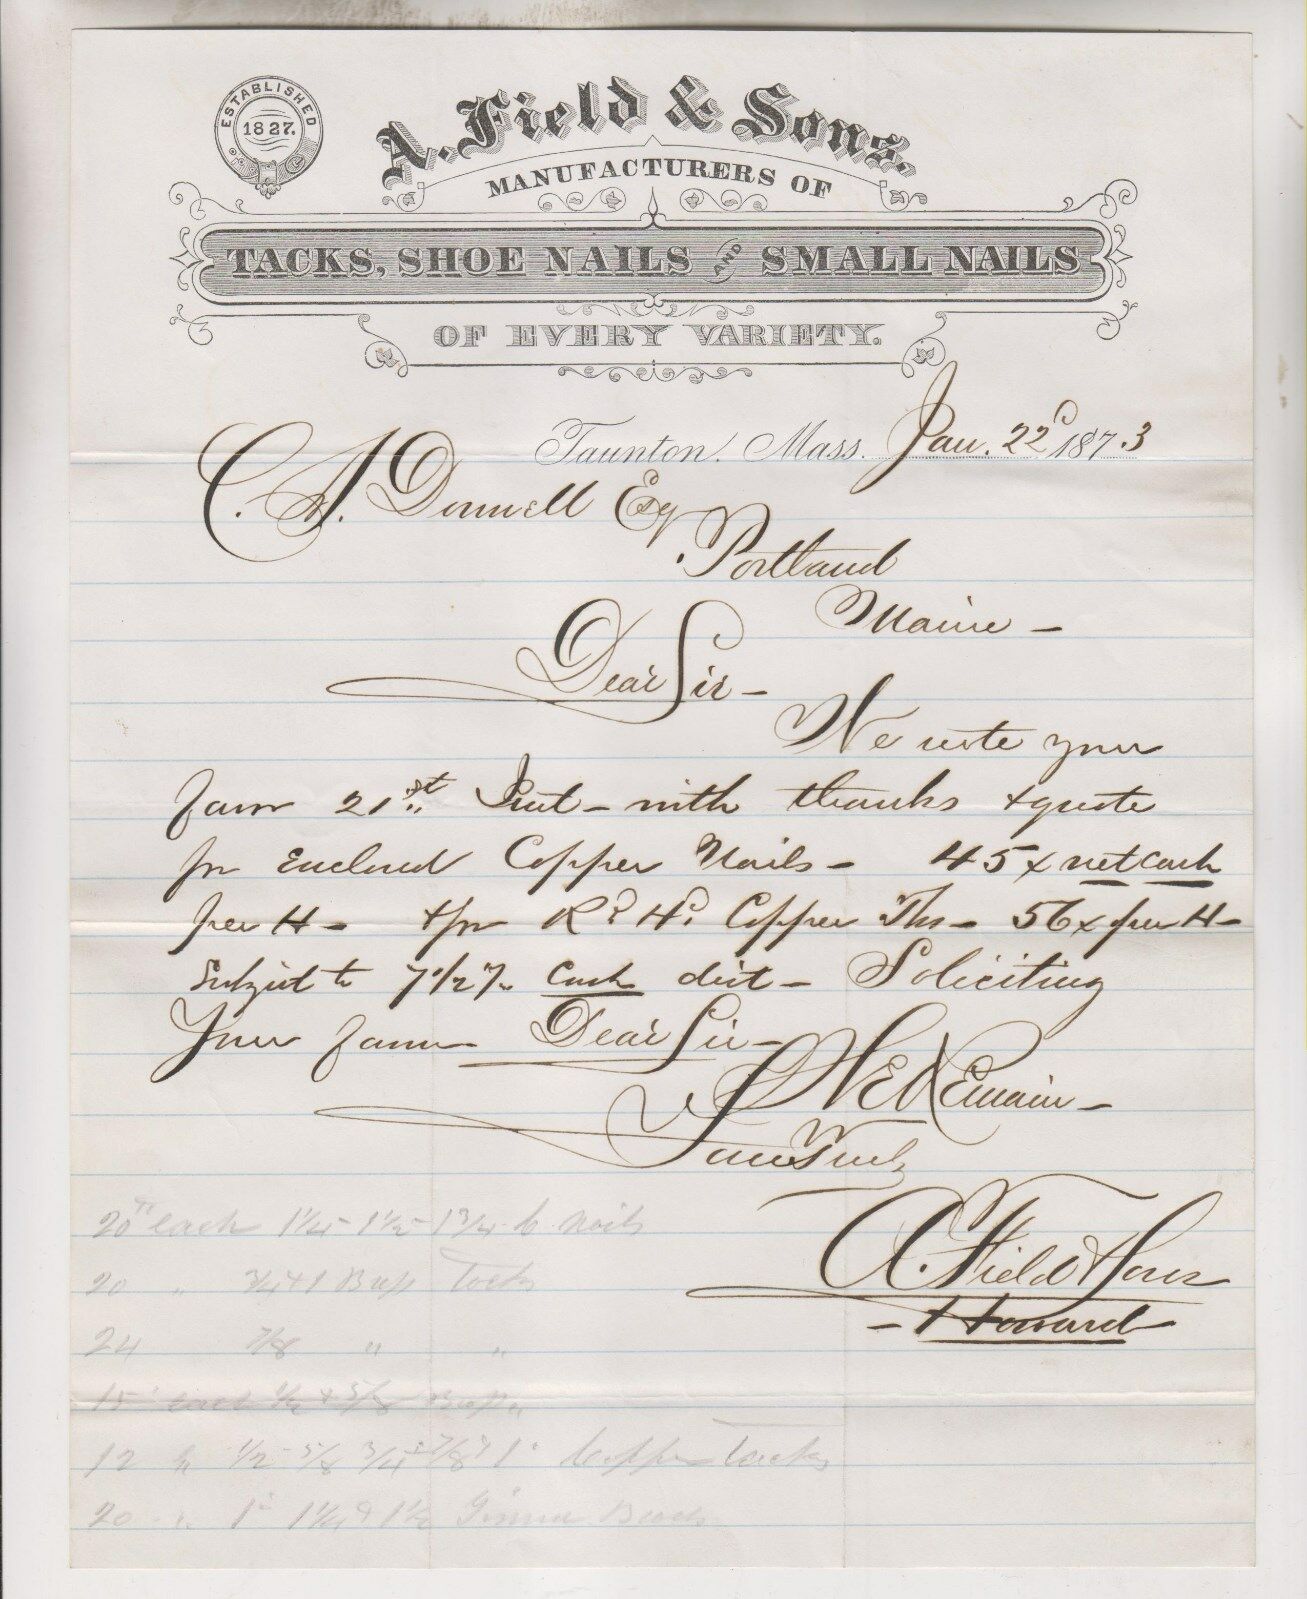 ESTABLISHED
1827.
A. Field & Sons.
MANUFACTURERS OF
TACKS, SHOE NAILS AND SMALL NAILS
OF EVERY VARIETY.
Taunton, Mass. Jan. 22d 1873
C. A. Donnell Esq
Portland
Maine –
Dear Sir –
We note your
favor 21st Inst – with thanks & quote
for Enclosed Copper Nails – 45 net cash
per – & for Rd Hd Copper – 56 per
Subject to 7 1/2 % Cash dist – Soliciting
Your favors Dear Sir –
We Remain –
Yours Truly
A. Field & Sons
– Howard
20 each 1 1/4 - 1 1/2 - 1 3/4 C Nails
20 " 3/4 & 1 Tacks
24 7/8 " "
15 each 1/2 & 5/8
12 1/2 - 5/8 3/4 7/8 1 Copper Tacks
20 " 1 1 1/4 & 1 1/2